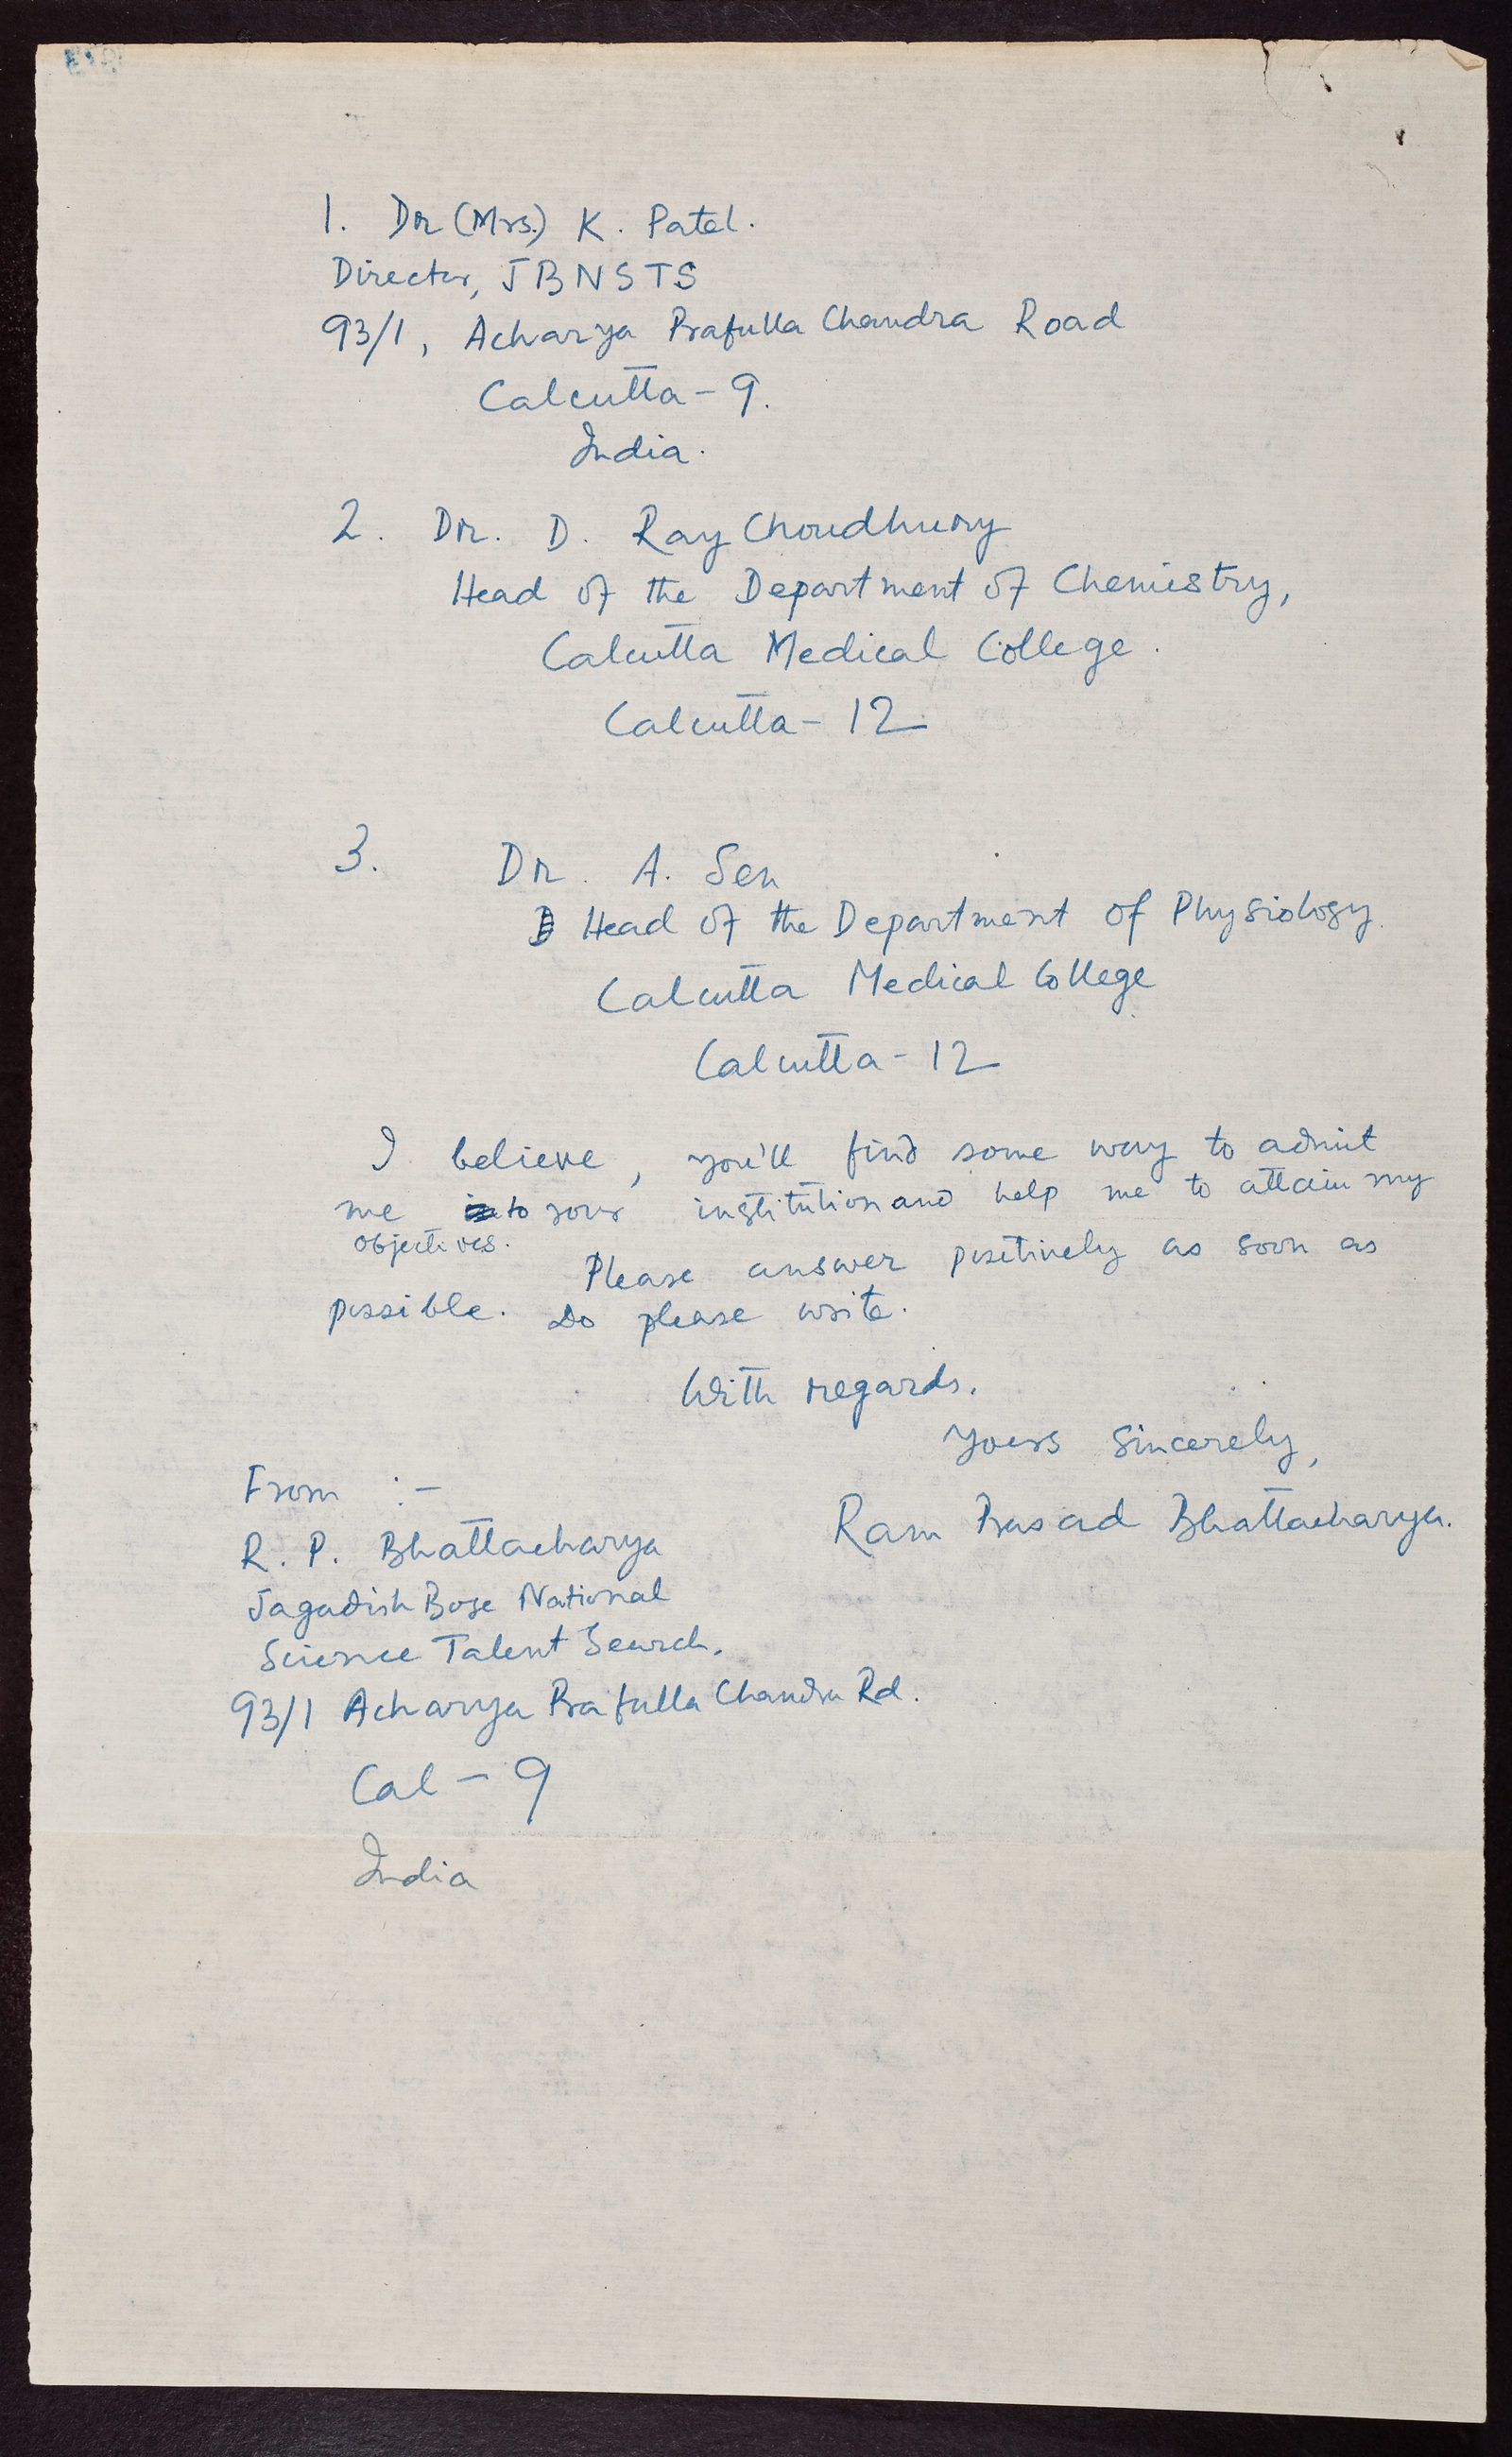 1. Dr (Mrs.) K. Patel.
Director, JBNSTS
93/1, Acharya Prafulla Chandra Road
Calcutta - 9.
India.
2. Dr. D. Ray Choudhury
Head of the Department of Chemistry,
Calcutta Medical College.
Calcutta - 12
3. Dr. A. Sen
Head of the Department of Physiology.
Calcutta Medical College
Calcutta - 12
I believe, you'll find some way to admit
me to your institution and help me to attain my
objectives.
Please answer positively as soon as
possible. Do please write.
With regards.
Yours sincerely,
Ram Prasad Bhattacharya.
From :-
R. P. Bhattacharya
Jagadish Bose National
Science Talent Search.
93/1 Acharya Prafulla Chandra Rd.
Cal - 9
India